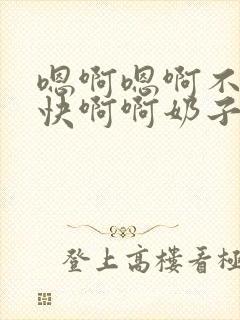 嗯啊嗯啊不
快啊啊奶子
登上高楼看极